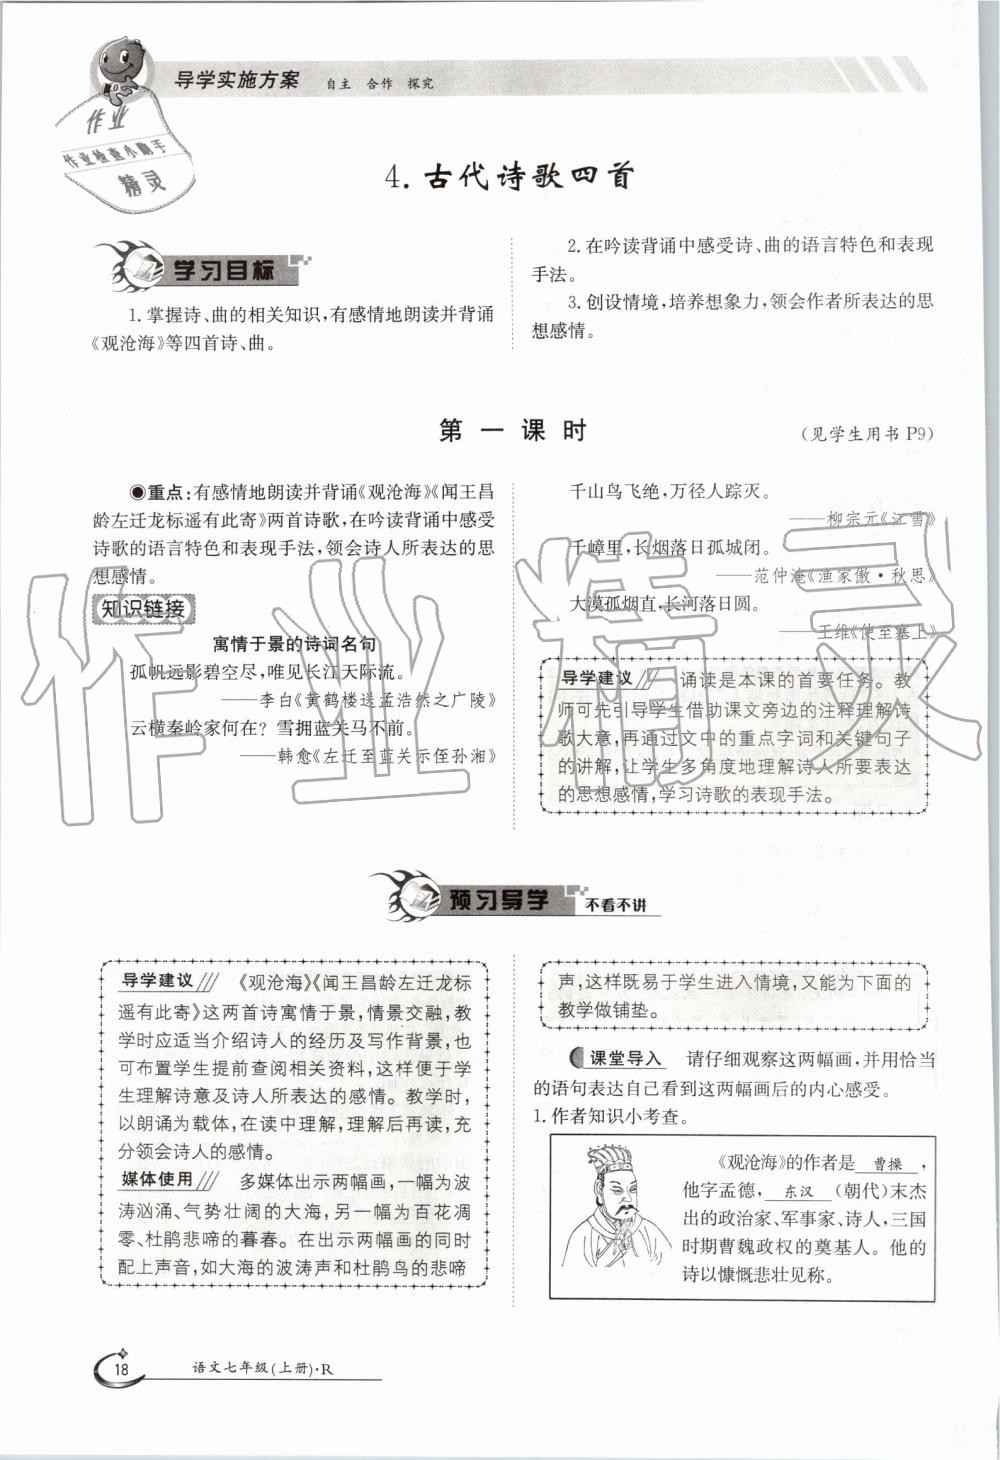 导学实施方案 自主 合作 探究
作业
作业检查小助手
精灵
4.古代诗歌四首
学习目标
1.掌握诗、曲的相关知识,有感情地朗读并背诵
《观沧海》等四首诗、曲。
2.在吟读背诵中感受诗、曲的语言特色和表现
手法。
3.创设情境,培养想象力,领会作者所表达的思
想感情。
第一课时
(见学生用书 P9)
◉重点:有感情地朗读并背诵《观沧海》《闻王昌
龄左迁龙标遥有此寄》两首诗歌,在吟读背诵中感受
诗歌的语言特色和表现手法,领会诗人所表达的思
想感情。
知识链接
寓情于景的诗词名句
孤帆远影碧空尽,唯见长江天际流。
——李白《黄鹤楼送孟浩然之广陵》
云横秦岭家何在?雪拥蓝关马不前。
——韩愈《左迁至蓝关示侄孙湘》
千山鸟飞绝,万径人踪灭。
——柳宗元《江雪》
千嶂里,长烟落日孤城闭。
——范仲淹《渔家傲·秋思》
大漠孤烟直,长河落日圆。
——王维《使至塞上》
导学建议 诵读是本课的首要任务。教
师可先引导学生借助课文旁边的注释理解诗
歌大意,再通过文中的重点字词和关键句子
的讲解,让学生多角度地理解诗人所要表达
的思想感情,学习诗歌的表现手法。
作业精灵
预习导学 不看不讲
导学建议 《观沧海》《闻王昌龄左迁龙标
遥有此寄》这两首诗寓情于景,情景交融,教
学时应适当介绍诗人的经历及写作背景,也
可布置学生提前查阅相关资料,这样便于学
生理解诗意及诗人所表达的感情。教学时,
以朗诵为载体,在读中理解,理解后再读,充
分领会诗人的感情。
媒体使用 多媒体出示两幅画,一幅为波
涛汹涌、气势壮阔的大海,另一幅为百花凋
零、杜鹃悲啼的暮春。在出示两幅画的同时
配上声音,如大海的波涛声和杜鹃鸟的悲啼
声,这样既易于学生进入情境,又能为下面的
教学做铺垫。
课堂导入 请仔细观察这两幅画,并用恰当
的语句表达自己看到这两幅画后的内心感受。
1.作者知识小考查。
《观沧海》的作者是 曹操 ,
他字孟德, 东汉 (朝代)末杰
出的政治家、军事家、诗人,三国
时期曹魏政权的奠基人。他的
诗以慷慨悲壮见称。
18 语文七年级(上册)·R